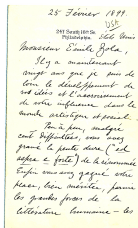 25 Février 1899
USA
267 South 16th St.
Philadelphia. Etats Unis
Monsieur Emile Zola
Il y a maintenant
vingt ans que je suis de
loin le développement de
vos idées et l'accroissement
de votre influence dans le
monde artistique et social.
Peu à peu, malgré
cent difficultées, vous avez
gravi la pente dure ("ed
aspra e forte") de la renommée
Enfin vous avez gagné votre
place, bien méritée, parmi
les grandes forces de la
littérature humaine — les